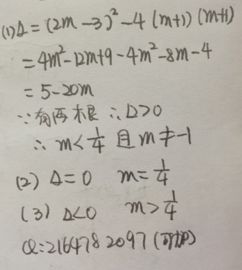 (1) Δ = (2m-3)²-4(m+1)(m+1)
= 4m²-12m+9-4m²-8m-4
= 5-20m
∵有两根 ∴Δ>0
∴ m<1/4 且 m≠-1
(2) Δ=0 m=1/4
(3) Δ<0 m>1/4
Q:2164782097(可加)